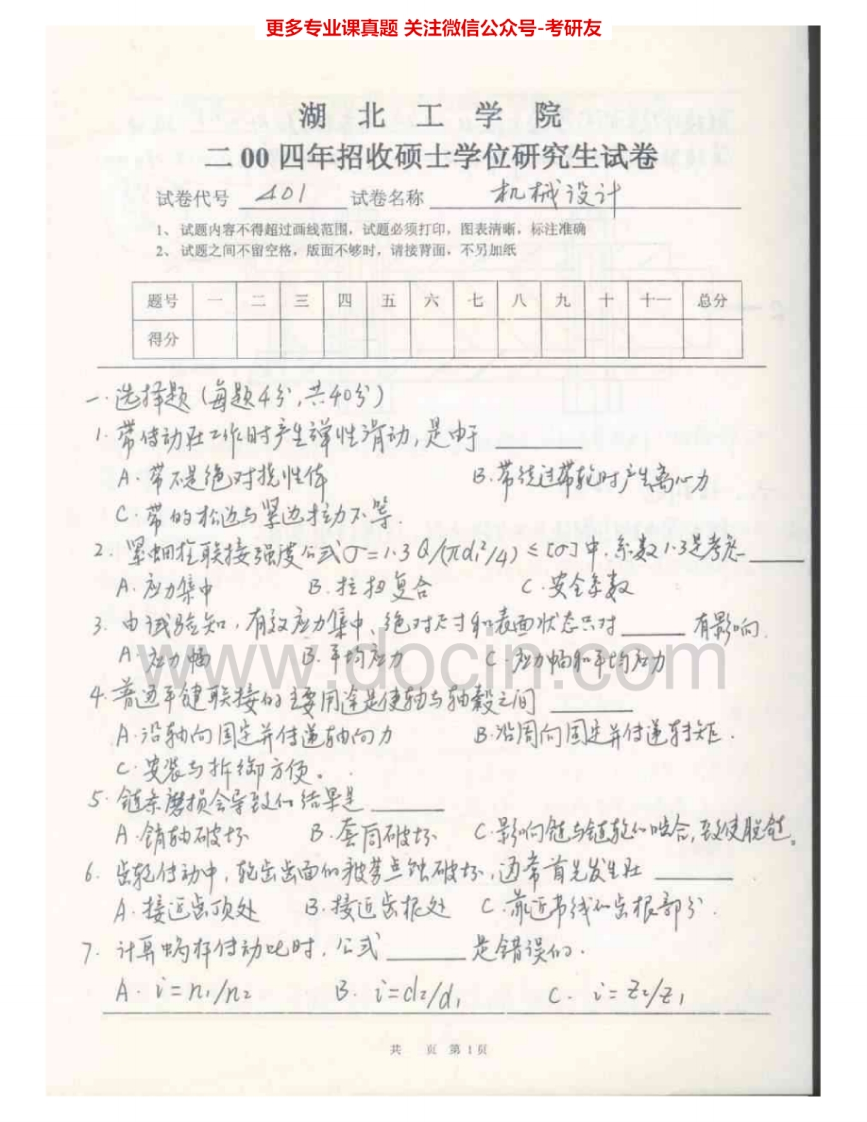 更多专业课真题 关注微信公众号-考研友
湖北工学院
二00四年招收硕士学位研究生试卷
试卷代号 401 试卷名称 机械设计
1、试题内容不得超过画线范围，试题必须打印，图表清晰，标注准确
2、试题之间不留空格，版面不够时，请接背面，不另加纸
题号 一 二 三 四 五 六 七 八 九 十 十一 总分
得分
一.选择题（每题4分,共40分）
1.带传动在工作时产生弹性滑动,是由于
A.带不是绝对挠性体 B.带绕过带轮时产生离心力
C.带的松边与紧边拉力不等.
2.紧螺栓联接强度公式σ=1.3Q/(πd₁²/4)≤[σ]中,系数1.3是考虑
A.应力集中 B.拉扭复合 C.安全系数
3.由试验知,有效应力集中、绝对尺寸和表面状态只对 有影响.
A.应力幅 B.平均应力 C.应力幅和平均应力
www.docin.com
4.普通平键联接的主要用途是使轴与轴毂之间
A.沿轴向固定并传递轴向力 B.沿周向固定并传递转矩.
C.安装与拆卸方便.
5.链条磨损会导致的结果是
A.销轴破坏 B.套筒破坏 C.影响链与链轮的啮合,致使脱链.
6.齿轮传动中,轮齿齿面的疲劳点蚀破坏,通常首先发生在
A.接近齿顶处 B.接近齿根处 C.靠近节线的齿根部分.
7.计算蜗杆传动比时,公式 是错误的.
A.i=n₁/n₂ B.i=d₂/d₁ C.i=z₂/z₁
共 页 第1页